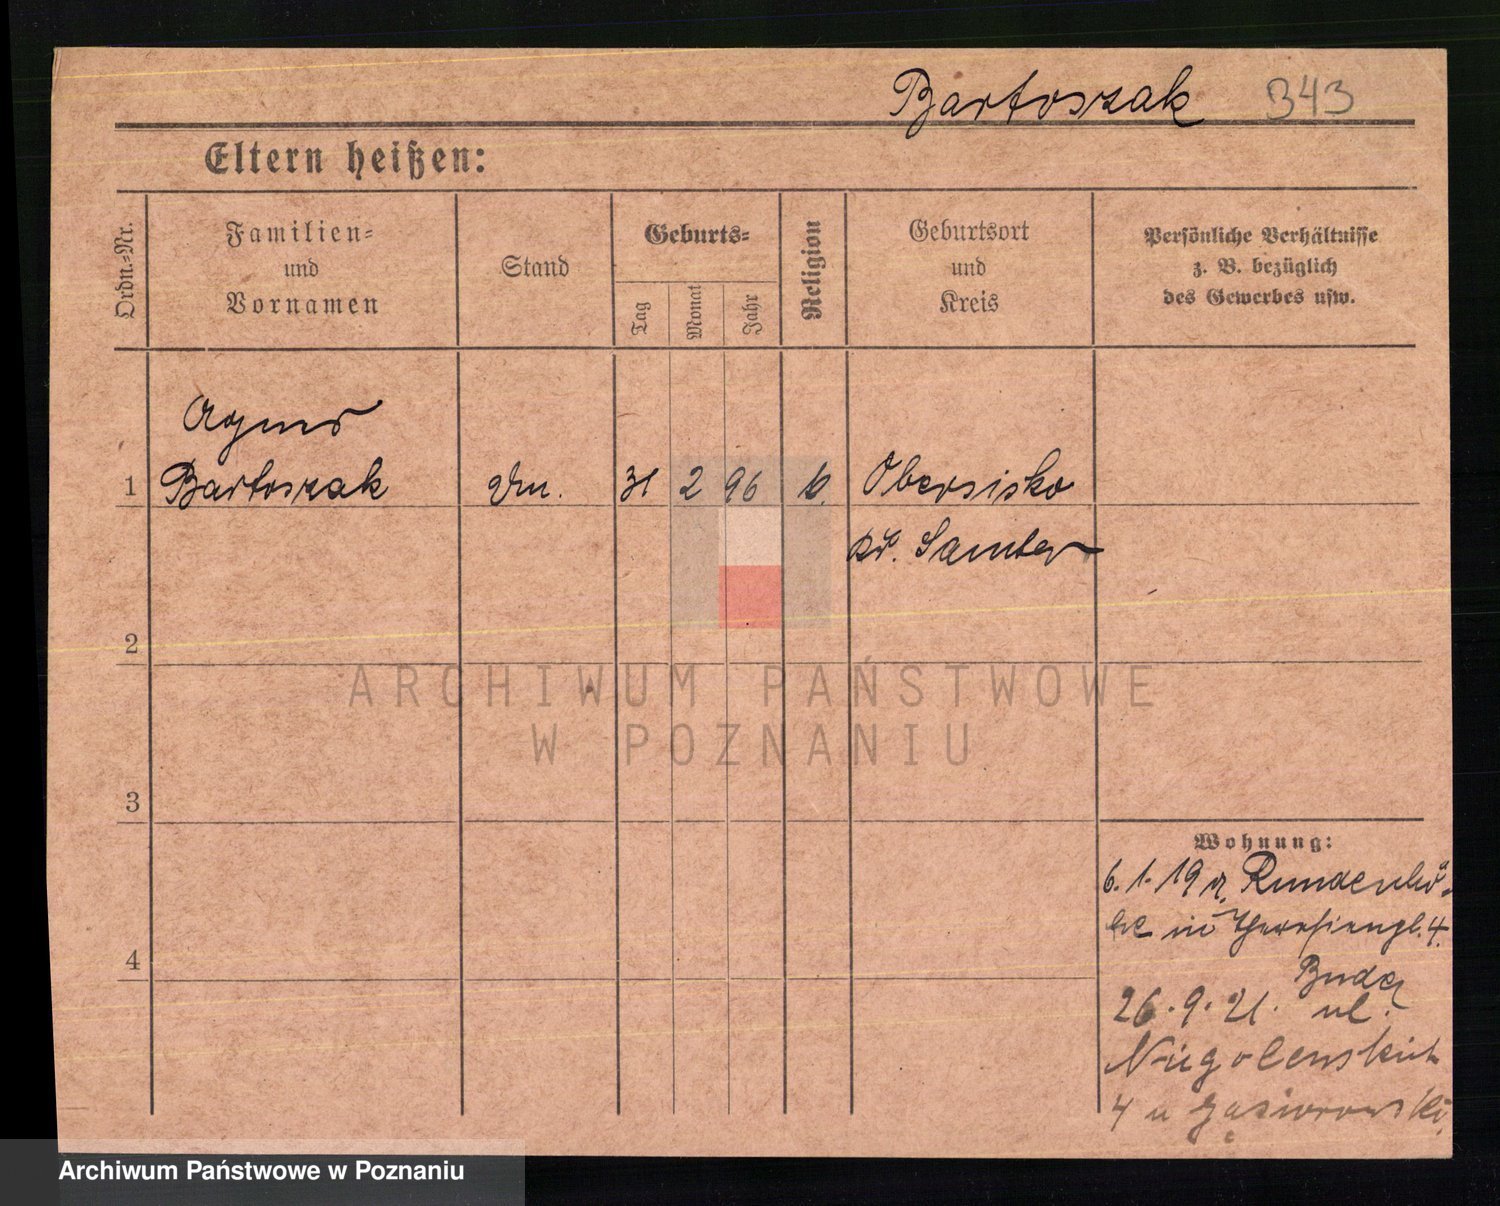 Bartoszak 343
Eltern heißen:
Ordn.=Nr.
Familien=
und
Vornamen
Stand
Geburts=
Tag
Monat
Jahr
Religion
Geburtsort
und
Kreis
Persönliche Verhältnisse
z. B. bezüglich
des Gewerbes usw.
Agnes
1 Bartoszak 31 2 96 Obersisko
Kr. Samter
2
3
4
Wohnung:
6. 1. 19
in 4.
Buda
26. 9. 21. ul.
Niegolewskich
4 u Gąsiorowski
ARCHIWUM PAŃSTWOWE
W POZNANIU
Archiwum Państwowe w Poznaniu